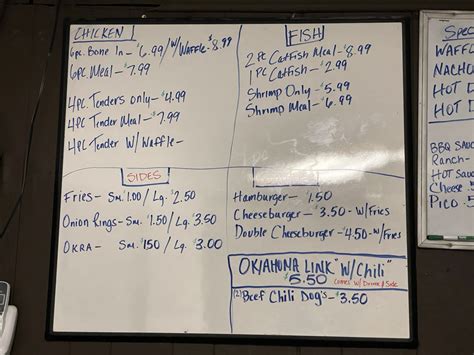 CHICKEN
6pc. Bone In - $6.99 / W/Waffle - $8.99
6pc Meal - $7.99
4pc Tenders only - $4.99
4pc Tender Meal - $7.99
4pc Tender W/Waffle -
FISH
2 Pc Catfish Meal - $8.99
1 Pc Catfish - $2.99
Shrimp Only - $5.99
Shrimp Meal - $6.99
SIDES
Fries - Sm. $1.00 / Lg. $2.50
Onion Rings - Sm. $1.50 / Lg. $3.50
OKRA - Sm. $150 / Lg. $3.00
Hamburger - $1.50
Cheeseburger - $3.50 - W/Fries
Double Cheeseburger - $4.50 - W/Fries
OKlAHONA LINK "W/Chili"
$5.50 Comes W/ Drink / Side
(2) Beef Chili Dog's - $3.50
Spec
WAFF
NACHO
HOT D
HOT D
BBQ SAUC
Ranch -
HOT Sauc
Cheese
PICO .5